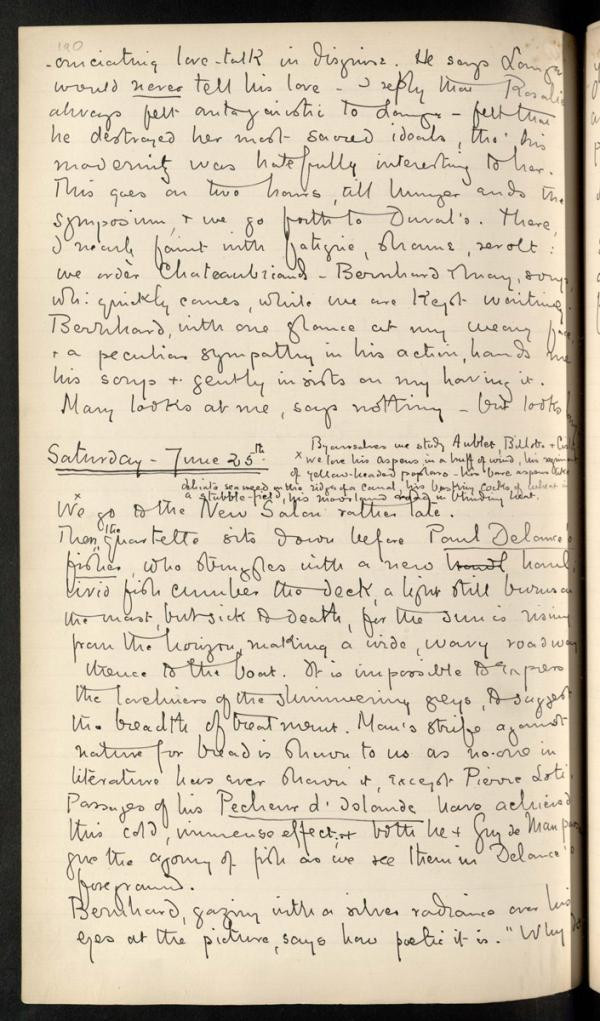 190
-onciating love-talk in disguise. He says Longe
would never tell his love - I reply that Rosalie
always felt antagonistic to Longe - felt that
he destroyed her most sacred ideals, tho' his
modernity was hatefully interesting to her.
This goes on two hours, till hunger ends the
symposium, & we go forth to Duval's. There,
I nearly faint with fatigue, shame, revolt:
we order Chateaubriands - Bernhard & Mary, soup,
wh: quickly comes, while we are kept waiting.
Bernhard, with one glance at my weary face
& a peculiar sympathy in his action, hands me
his soup & gently insists on my having it.
Mary looks at me, says nothing - but looks
Saturday - June 25th.
By ourselves we study Aublet, Billotte &
x we love his aspens in a huff of wind, his
of yellow-headed poplars - his bare aspens like
delicate seaweed on the ridge of a canal, his basking cocks of wheat in
a stubble-field, his moorland road in blinding heat.
x We go to the New Salon rather late.
Then the quartette sits down before Paul Delance's
fisher, who struggles with a new haul,
livid fish cumber the deck, a light still burns on
the mast, but sick to death, for the sun is rising
from the horizon, making a wide, wavy roadway
thence to the boat. It is impossible to express
the loveliness of the shimmering greys, to suggest
the breadth of treatment. Man's strife against
nature for bread is shown to us as no-one in
literature has ever shown it, except Pierre Loti.
Passages of his Pecheur d'Islande have achieved
this cold, immense effect; & both he & Guy de Maupassant
give the agony of fish as we see them in Delance's
foreground.
Bernhard, gazing with a silver radiance over his
eyes at the picture, says how poetic it is. "Why